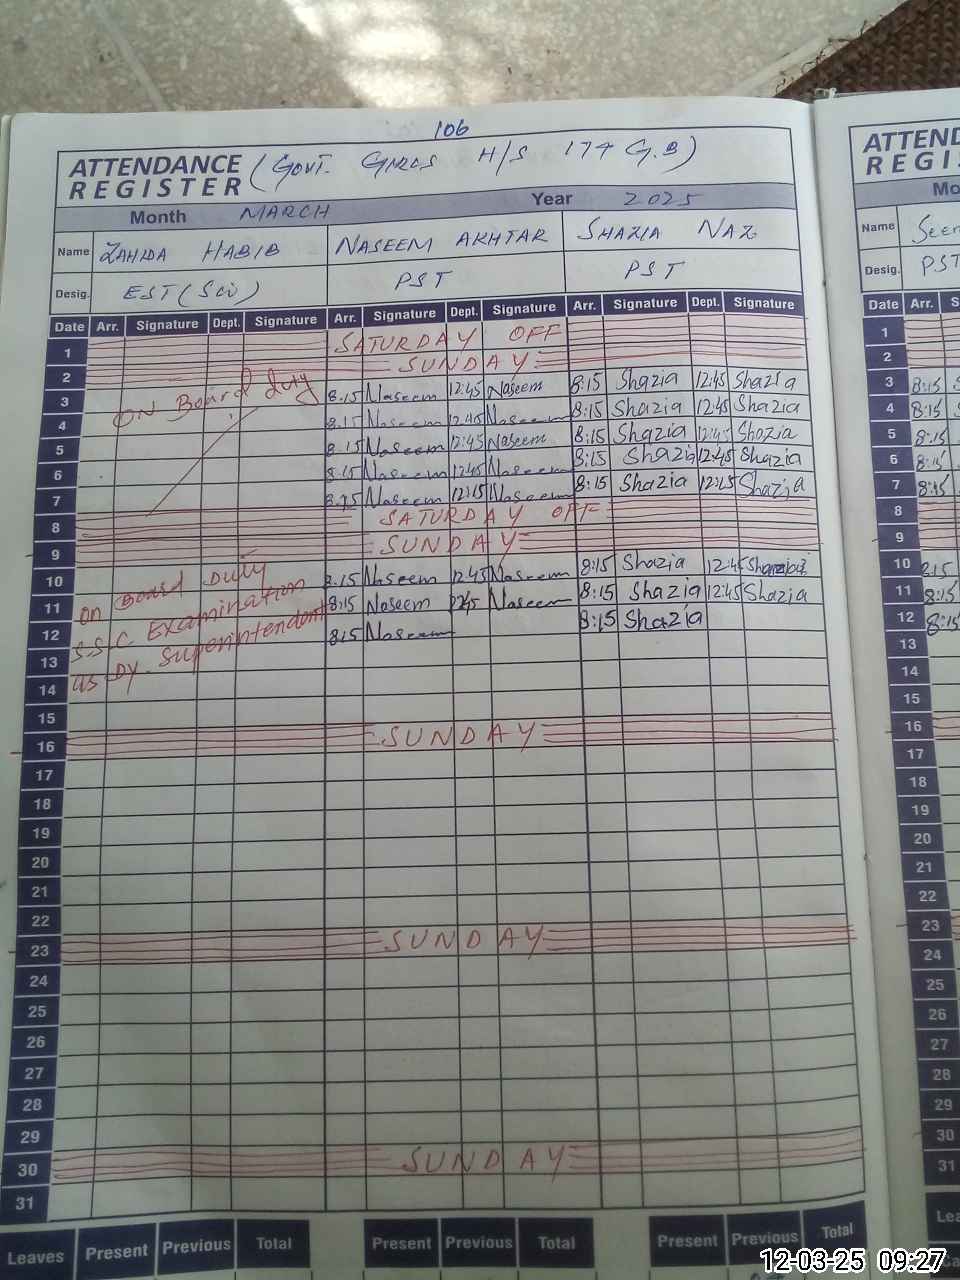 106
ATTENDANCE REGISTER (GOVT. GIRLS H/S 174 G.B)
Month MARCH Year 2025
Name ZAHIDA HABIB NASEEM AKHTAR SHAZIA NAZ
Desig. EST (Sci) PST PST
Date Arr. Signature Dept. Signature Arr. Signature Dept. Signature Arr. Signature Dept. Signature
1 SATURDAY OFF
2 SUNDAY
ON Board duty
3 8.15 Naseem 12:45 Naseem 8:15 Shazia 12:45 Shazia
4 8.15 Naseem 12:45 Naseem 8:15 Shazia 12:45 Shazia
5 8.15 Naseem 12:45 Naseem 8:15 Shazia 12:45 Shazia
6 8:15 Naseem 12:45 Naseem 8:15 Shazia 12:45 Shazia
7 8:15 Naseem 12:15 Naseem 8:15 Shazia 12:15 Shazia
8 SATURDAY OFF
9 SUNDAY
10 8.15 Naseem 12:45 Naseem 8:15 Shazia 12:45 Shazia
11 8:15 Naseem 12:45 Naseem 8:15 Shazia 12:45 Shazia
12 8:15 Naseem 8:15 Shazia
on Board Duty
S.S.C Examination
as Dy. Superintendent
13
14
15
16 SUNDAY
17
18
19
20
21
22
23 SUNDAY
24
25
26
27
28
29
30 SUNDAY
31
Leaves Present Previous Total Present Previous Total Present Previous Total
ATTEND
REGI
Mo
Name Seem
Desig. PST
Date Arr. S
1
2
3 8:15
4 8:15
5 8:15
6 8:15
7 8:15
8
9
10 8:15
11 8:15
12 8:15
13
14
15
16
17
18
19
20
21
22
23
24
25
26
27
28
29
30
31
Lea
12-03-25 09:27